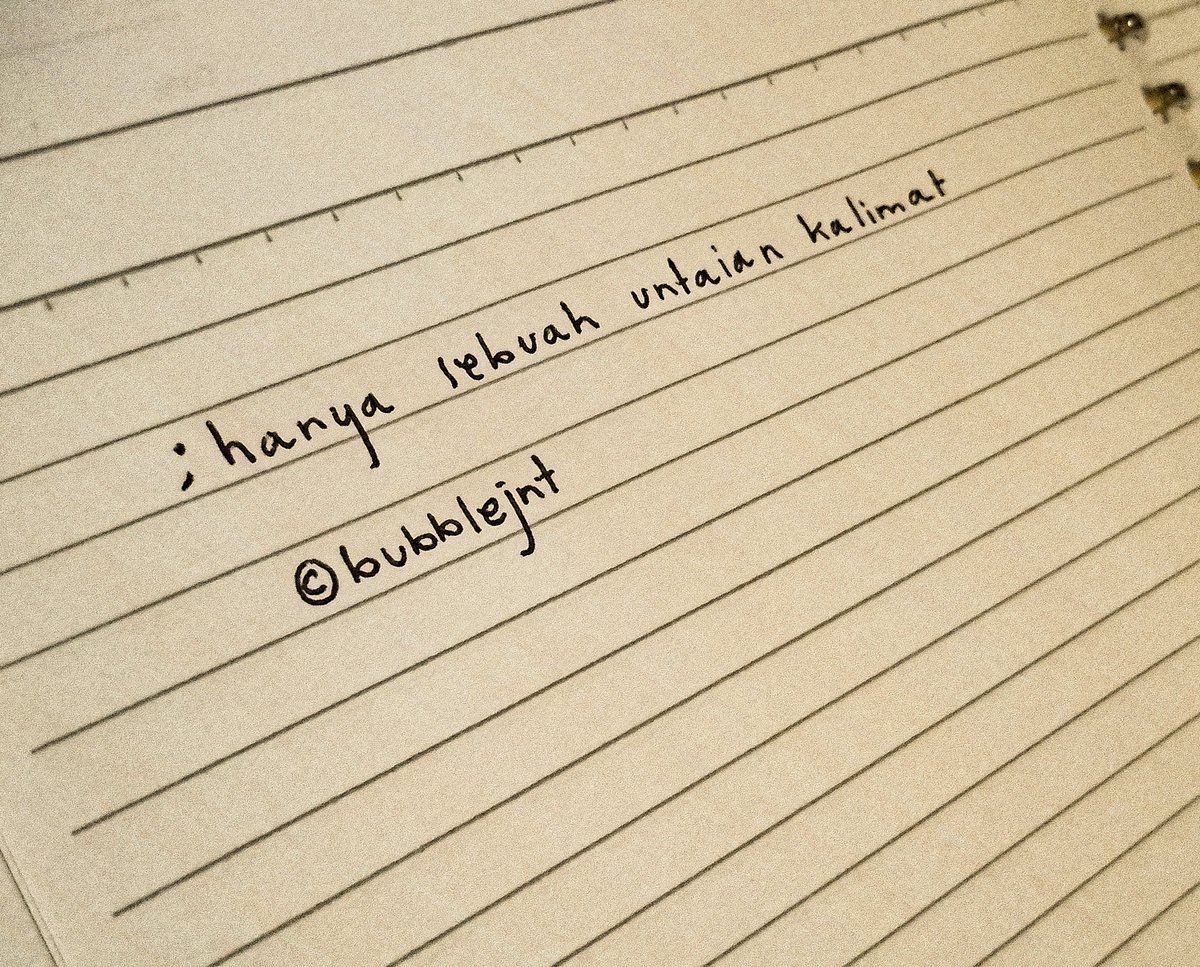 ;hanya sebuah untaian kalimat
©bubblejnt